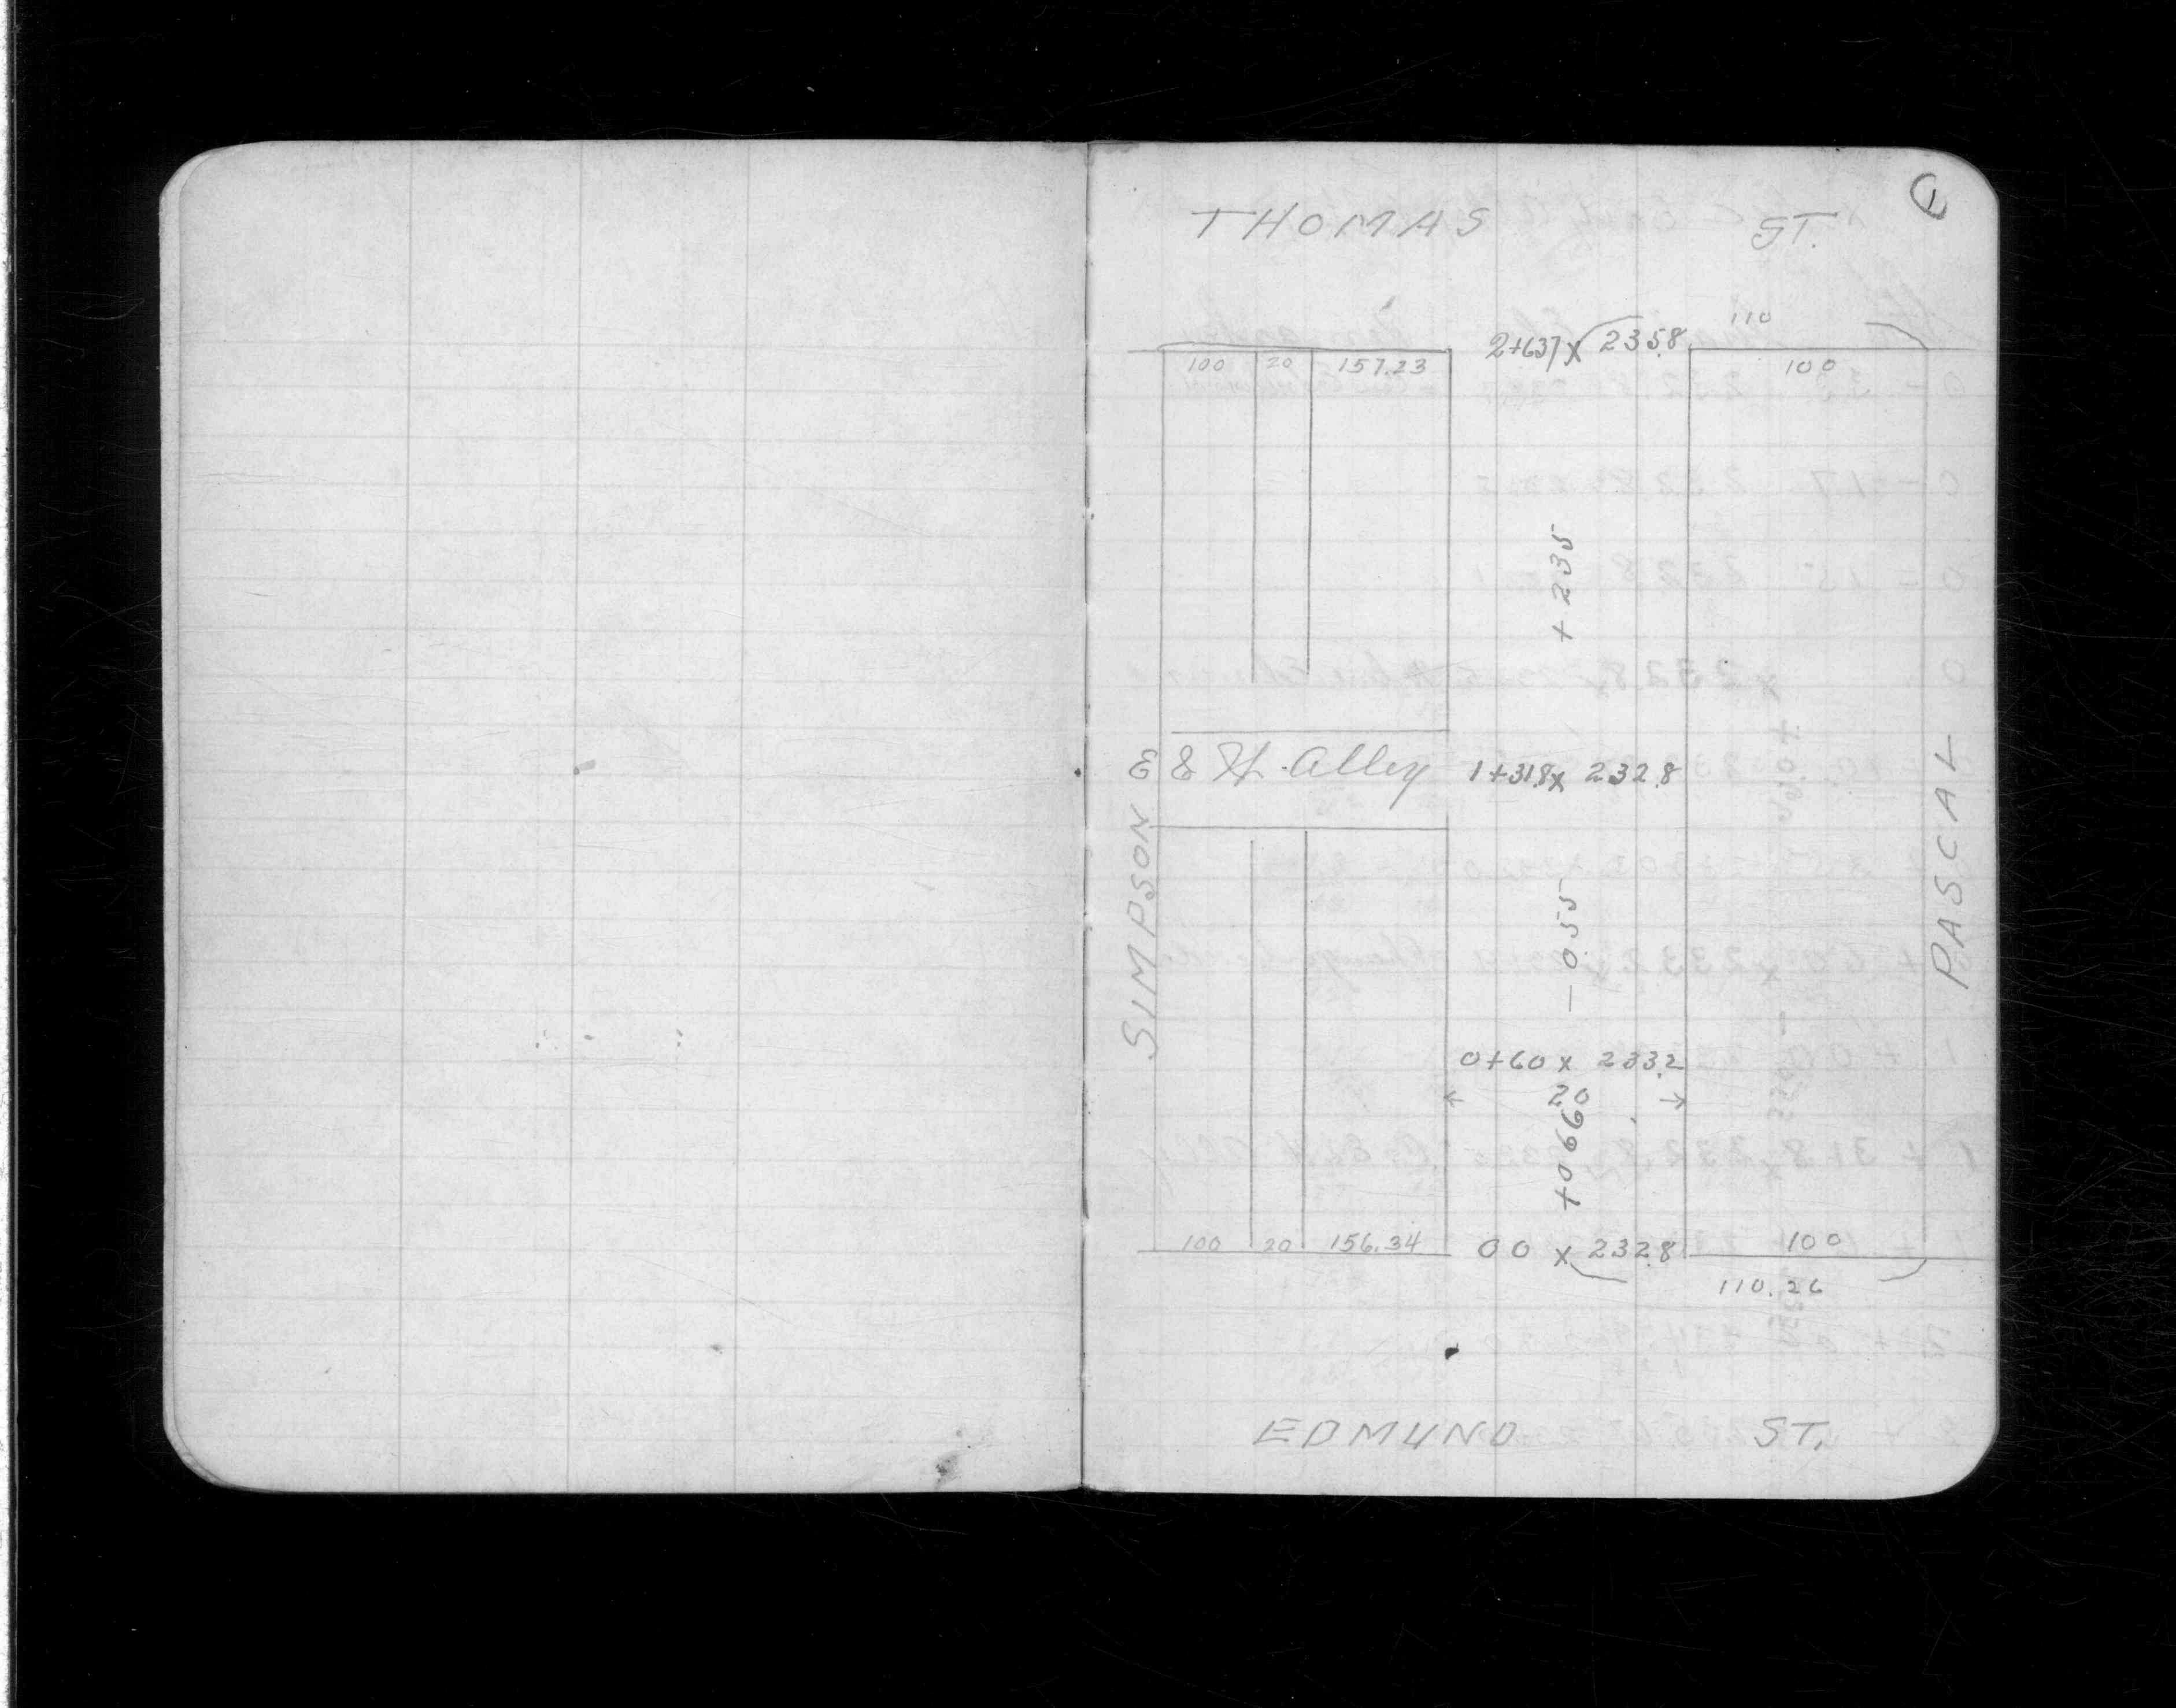 1
THOMAS ST.
110
2+63.7 x 235.8
100 20 157.23 100
+2.35
E & W. Alley 1+31.8 x 232.8
SIMPSON
PASCAL
-0.55
0+60 x 233.2
← 20 →
+0.66
100 20 156.34 00 x 232.8 100
110.26
EDMUND ST.